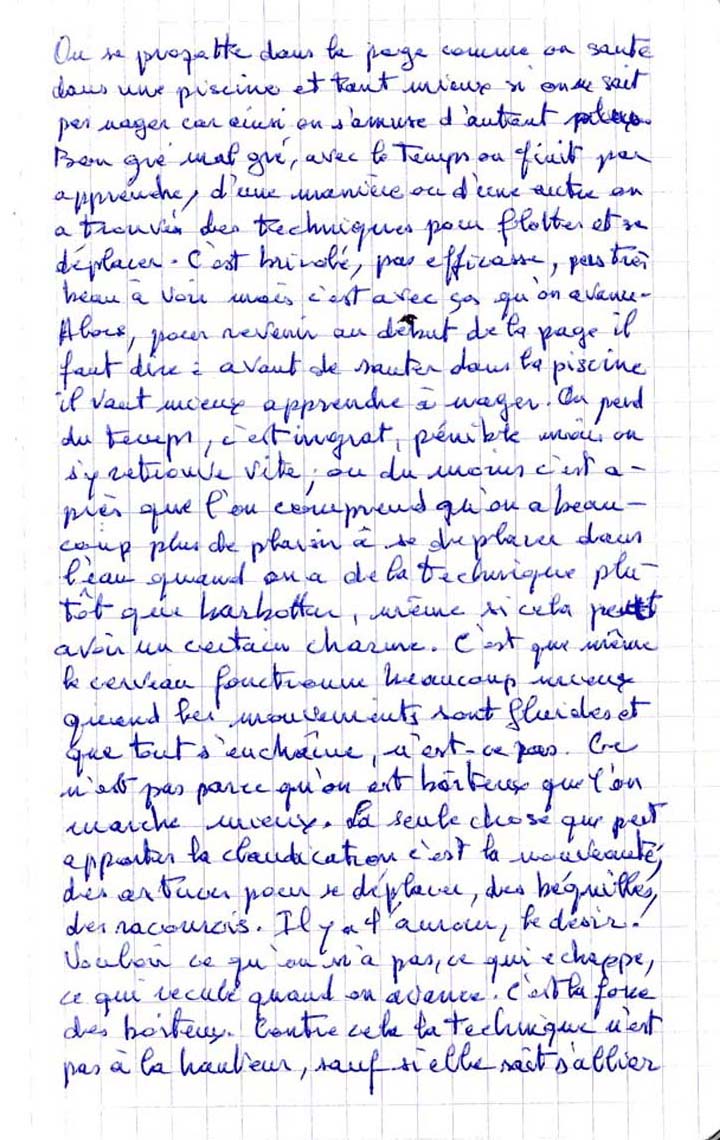 On se projette dans la page comme on saute
dans une piscine et tant mieux si on ne sait
pas nager car ainsi on s'amuse d'autant plus.
Bon gré mal gré, avec le temps on finit par
apprendre, d'une manière ou d'une autre on
a trouvé des techniques pour flotter et se
déplacer. C'est bricolé, pas efficasse, pas très
beau à voir mais c'est avec ça qu'on avance.
Alors, pour revenir au début de la page il
faut dire : avant de sauter dans la piscine
il vaut mieux apprendre à nager. On perd
du temps, c'est ingrat, pénible mais on
s'y retrouve vite, ou du moins c'est a-
près que l'on comprend qu'on a beau-
coup plus de plaisir à se déplacer dans
l'eau quand on a de la technique plu-
tôt que barbotter, même si cela peut
avoir un certain charme. C'est que même
le cerveau fonctionne beaucoup mieux
quand les mouvements sont fluides et
que tout s'enchaîne, n'est-ce pas. Ce
n'est pas parce qu'on est boiteux que l'on
marche mieux. La seule chose que peut
apporter la claudication c'est la nouveauté,
des astuces pour se déplacer, des béquilles,
des racourcis. Il y a l'amour, le désir.
Vouloir ce qu'on n'a pas, ce qui echappe,
ce qui recule quand on avance. C'est la force
des boiteux. Contre cela la technique n'est
pas à la hauteur, sauf si elle sait s'allier